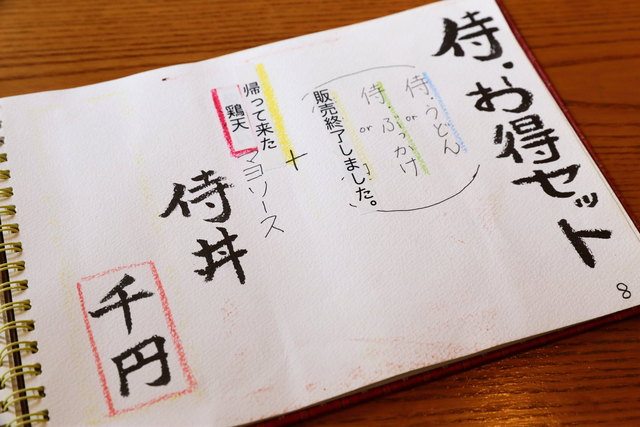 侍・お得セット
侍・うどん
or
侍・ぶっかけ
or
販売終了しました。
+
帰って来た
鶏天
マヨソース
侍丼
千円
8